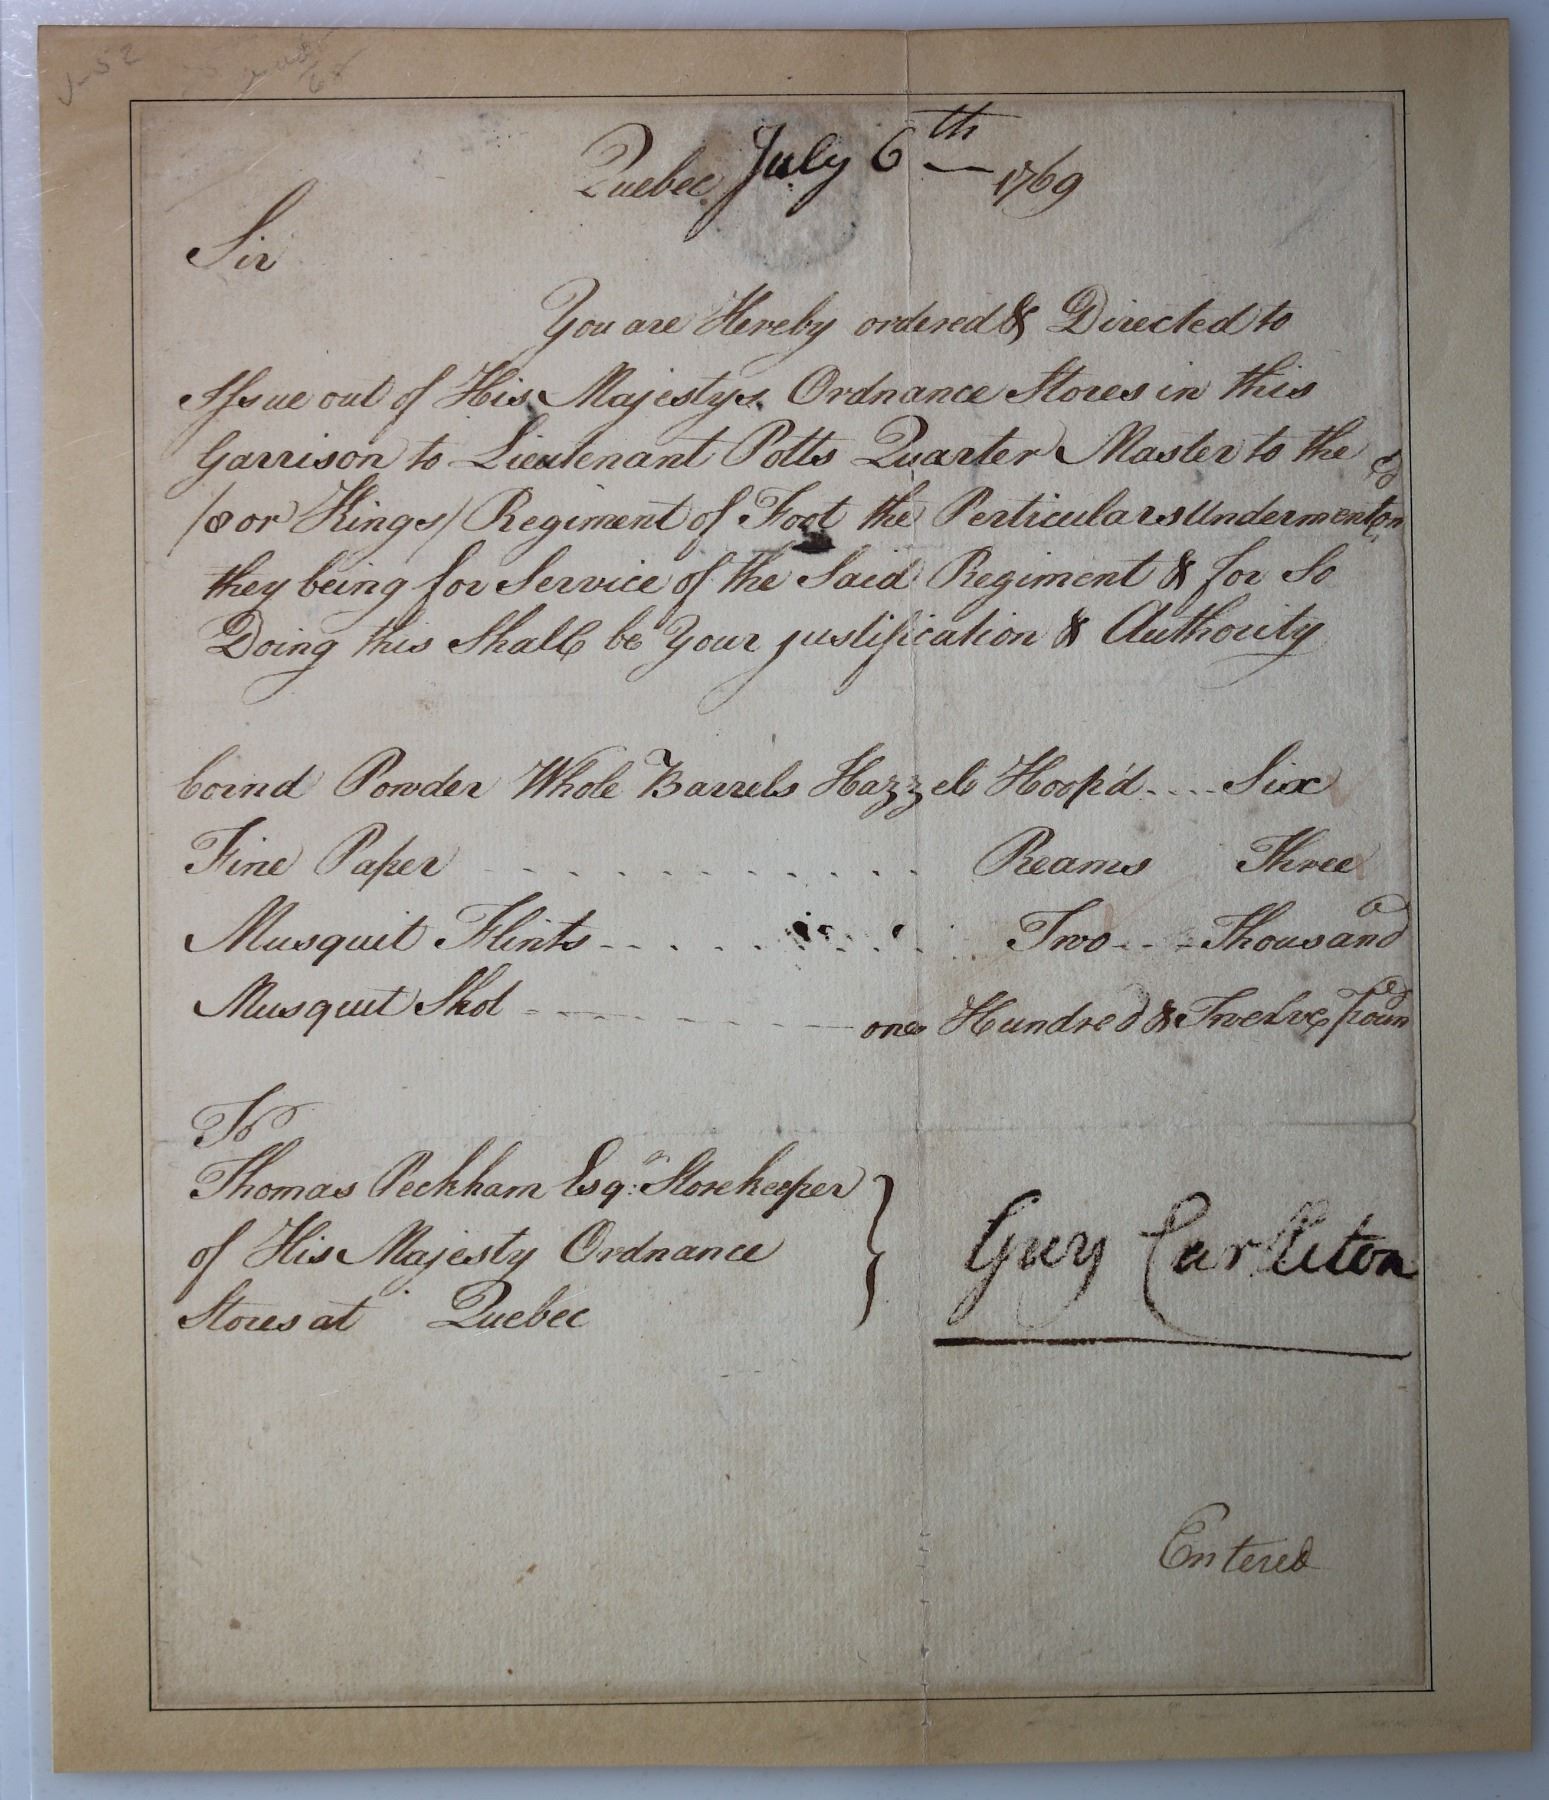 Quebec July 6th 1769
Sir
You are Hereby ordered & Directed to
Issue out of His Majestys Ordnance Stores in this
Garrison to Lieutenant Potts Quarter Master to the
/8 or Kings/ Regiment of Foot the Perticulars Undermentoned
they being for Service of the Said Regiment & for So
Doing this Shall be Your justification & Authority
Corn'd Powder Whole Barrels Hazzel Hoop'd .... Six
Fine Paper ............ Reams Three
Musquit Flints ............ Two .... Thousand
Musquit Shot ............ one Hundred & Twelve Pound
To
Thomas Peckham Esqr. Storekeeper
of His Majesty Ordnance
Stores at Quebec
Guy Carleton
Entered